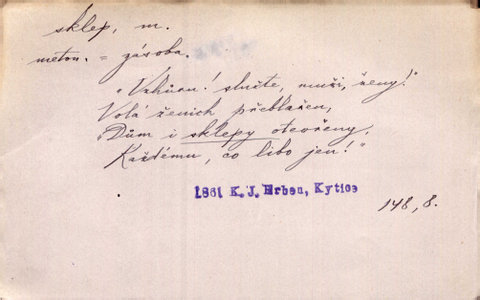 sklep, m.
meton. = zásoba.
"Vzhůru! slyšte, muži, ženy!"
Volá ženich přeblažen,
"Dům i sklepy otevřeny,
Každému, co libo jen!"
1861 K. J. Erben, Kytice
148, 8.